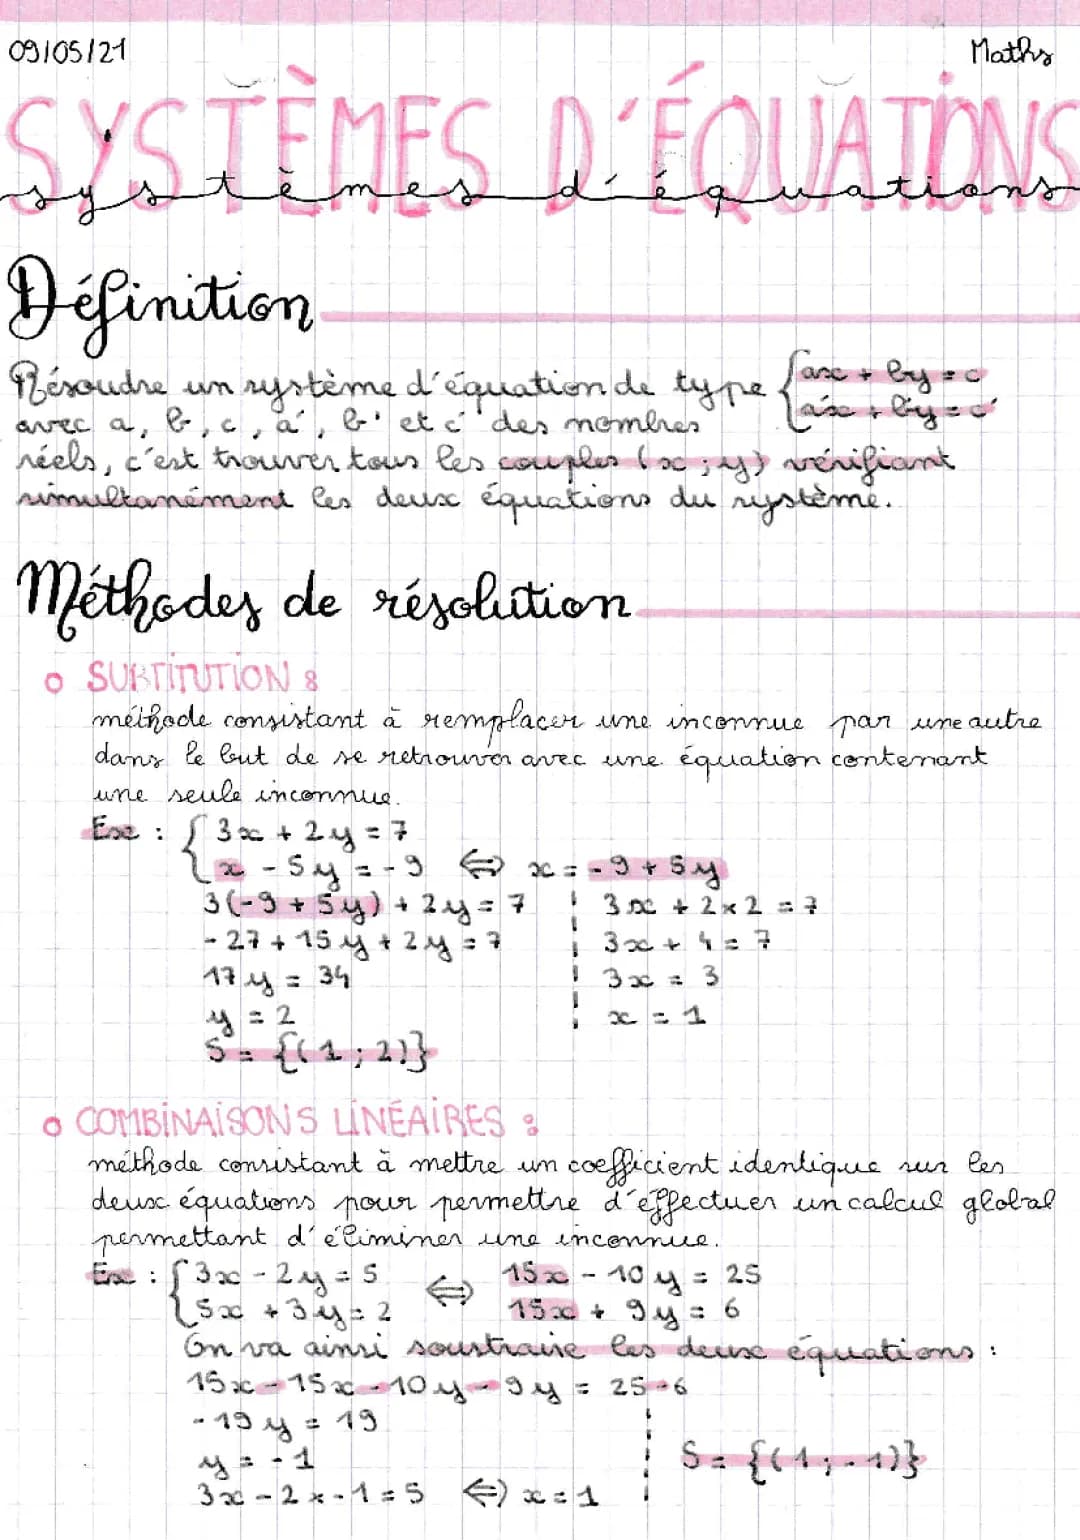 09/05/21
Maths
SYSTÈMES D'ÉQUATIONS
systèmes d'équations
Définition
Résoudre un système d'équation de type { ax + by = c
a'x + b'y = c'
avec a, b, c, a', b' et c' des nombres
réels, c'est trouver tous les couples (x ; y) vérifiant
simultanément les deux équations du système.
Méthodes de résolution
o SUBTITUTION :
méthode consistant à remplacer une inconnue par une autre
dans le but de se retrouver avec une équation contenant
une seule inconnue.
Ex : { 3x + 2y = 7
x - 5y = -9 ⇔ x = -9 + 5y
3(-9 + 5y) + 2y = 7
3x + 2 × 2 = 7
-27 + 15y + 2y = 7
3x + 4 = 7
17y = 34
3x = 3
y = 2
x = 1
S = {(1 ; 2)}
o COMBINAISONS LINÉAIRES :
méthode consistant à mettre un coefficient identique sur les
deux équations pour permettre d'effectuer un calcul global
permettant d'éliminer une inconnue.
Ex : { 3x - 2y = 5 ⇔ 15x - 10y = 25
5x + 3y = 2 15x + 9y = 6
On va ainsi soustraire les deux équations :
15x - 15x - 10y - 9y = 25 - 6
-19y = 19
y = -1
S = {(1 ; -1)}
3x - 2 × -1 = 5 ⇔ x = 1